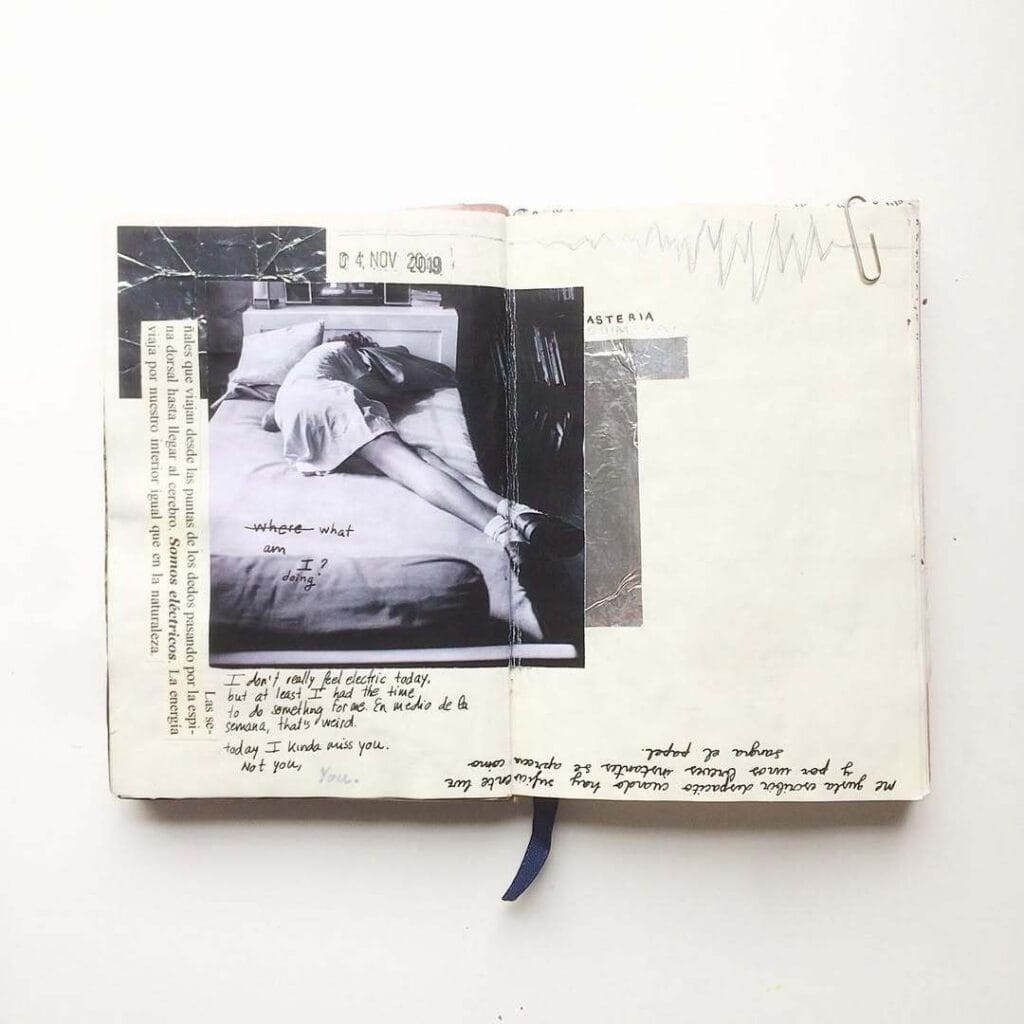 04 NOV 2019
Las se-
ñales que viajan desde las puntas de los dedos pasando por la espi-
na dorsal hasta llegar al cerebro. Somos eléctricos. La energía
viaja por nuestro interior igual que en la naturaleza.
where what
am
I?
doing?
I don't really feel electric today.
but at least I had the time
to do something for me. En medio de la
semana, that's weird.
today I kinda miss you.
Not you,
You.
ASTERIA
me gusta escribir despacito cuando hay suficiente luz
y por unos breves instantes se aprecia como
sangra el papel.